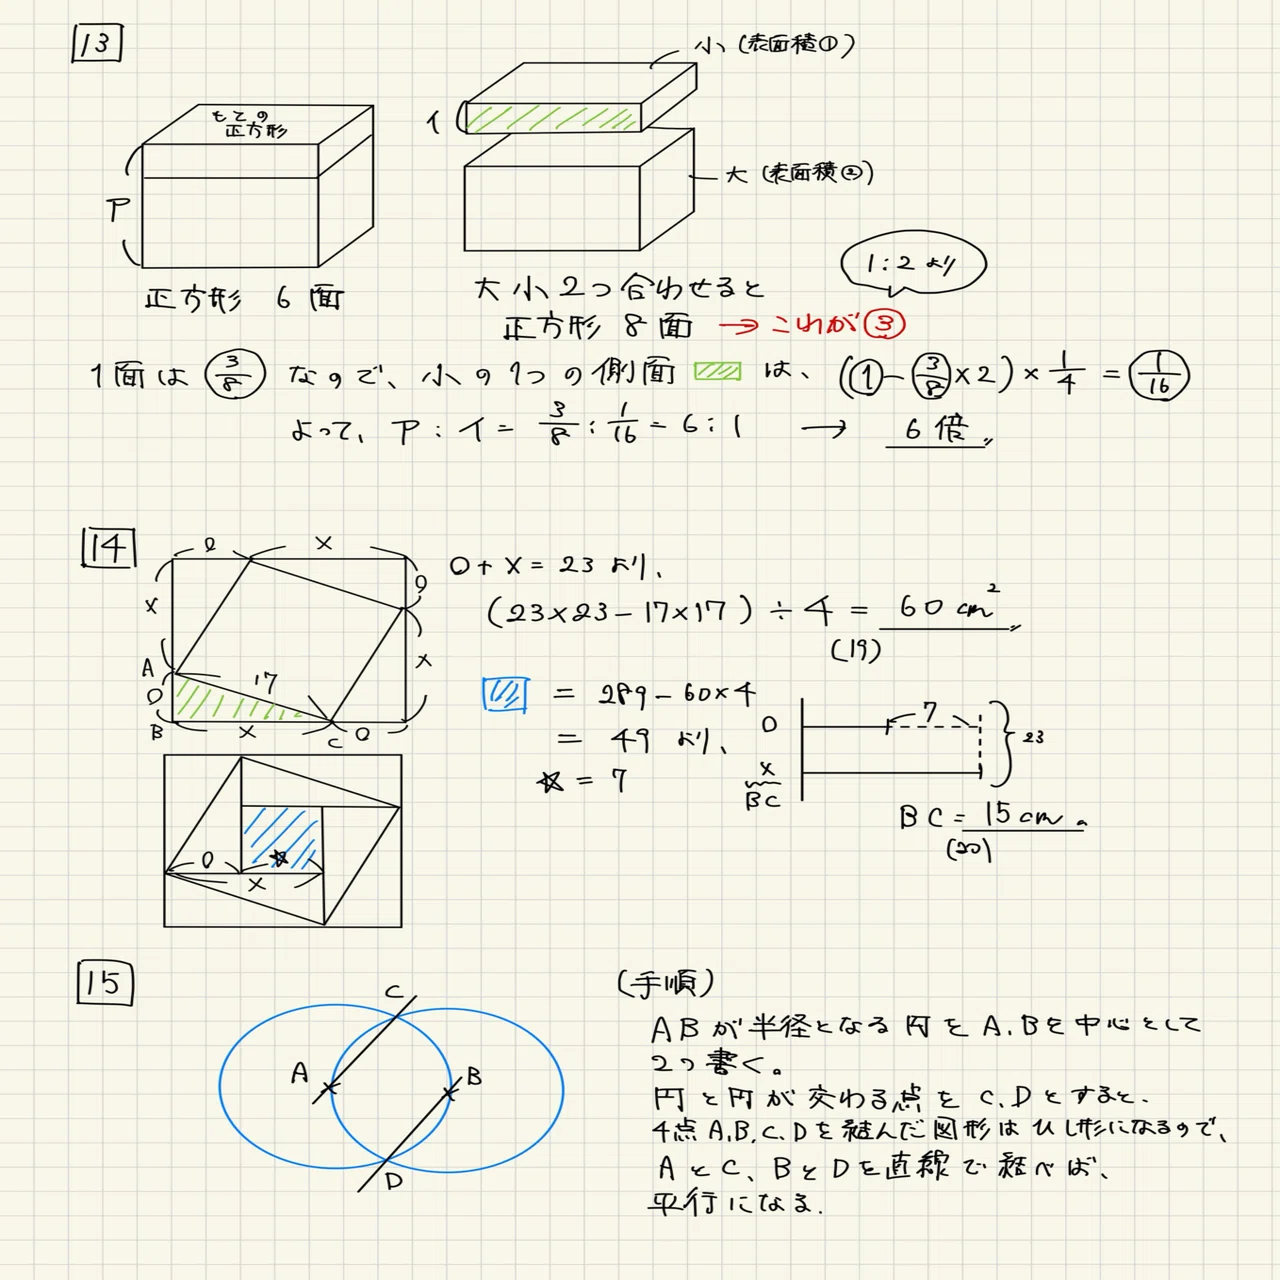 13
小 (表面積①)
もとの
正方形
イ
ア
大 (表面積②)
正方形 6面
大小2つ合わせると
1:2より
正方形 8面 → これが③
1面は 3/8 なので、小の1つの側面 は、(①-3/8×2)×1/4=1/16
よって、ア:イ=3/8:1/16=6:1 → 6倍
14
○ ×
○+×=23より、
× ○
(23×23-17×17)÷4=60cm²
(19)
A 17 ×
○
B × C ○
=289-60×4
=49より、
☆=7
○ 7 23
×
BC
BC=15cm。
(20)
○ ☆
×
15
(手順)
C
ABが半径となる円をA.Bを中心として
2つ書く。
A B
円と円が交わる点をC.Dとすると、
4点A.B.C.Dを結んだ図形はひし形になるので、
AとC、BとDを直線で結べば、
D
平行になる.